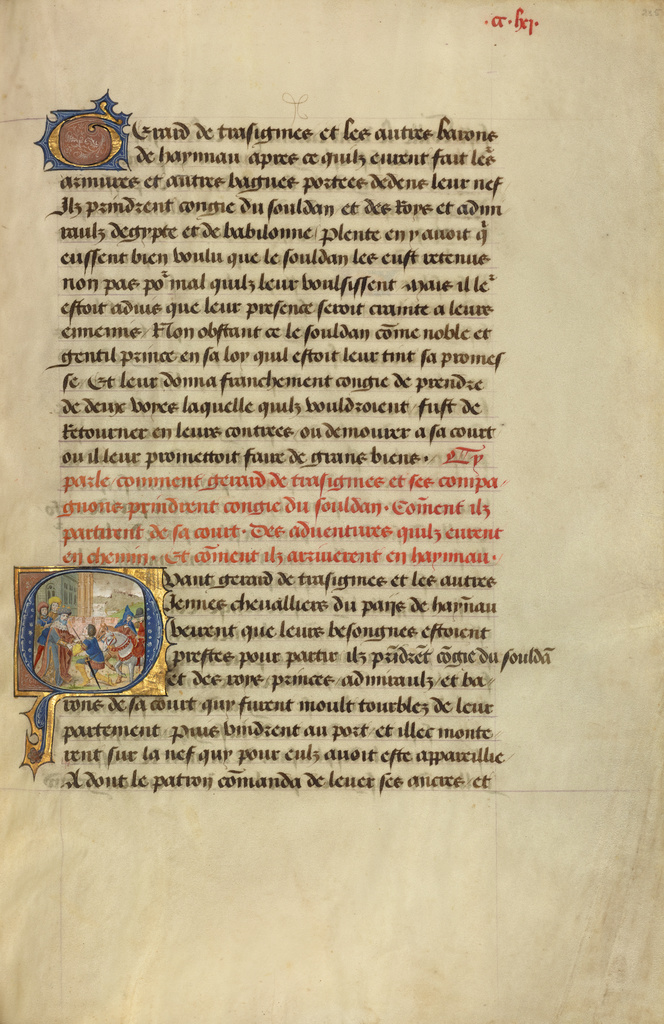 ·cc·lxj·
Gerard de trasignies et les autres barons
de haynnau apres ce quilz eurent fait leᷤ
armures et autres bagues portees dedens leur nef
Ilz prindrent congie du souldan et des Roys et admi
raulz degypte et de babilonne / Plente en y auoit q̄
eussent bien voulu que le souldan les eust retenus
non pas poᷣ mal quilz leur voulsissent Mais il leᷣ
estoit aduis que leur presence seroit crainte a leurs
ennemis / Non obstant ce le souldan cōme noble et
gentil prince en sa loy quil estoit leur tint sa promes
se / Et leur donna franchement congie de prendre
de deux voyes laquelle quilz vouldroient / fust de
Retourner en leurs contrees ou demourer a sa court
ou il leur promettoit faire de grans biens · Cy
parle comment gerard de trasignies et ses compa
gnons prindrent congie du souldan · Com̄ent ilz
partirent de sa court · Des aduentures quilz eurent
en chemin · Et cōment ilz arriuerent en haynnau ·
Quant gerard de trasignies et les autres
Jennes chevalliers du pays de hayn̄au
veirent que leurs besongnes estoient
prestes pour partir ilz prīdrēt cōgie du souldā
et des roys / princes / admiraulz / et ba
rons de sa court quy furent moult tourblez de leur
partement / Puis vindrent au port et illec monte
rent sur la nef quy pour eulz auoit este appareillie
A dont le patron cōmanda de leuer ses ancres / et